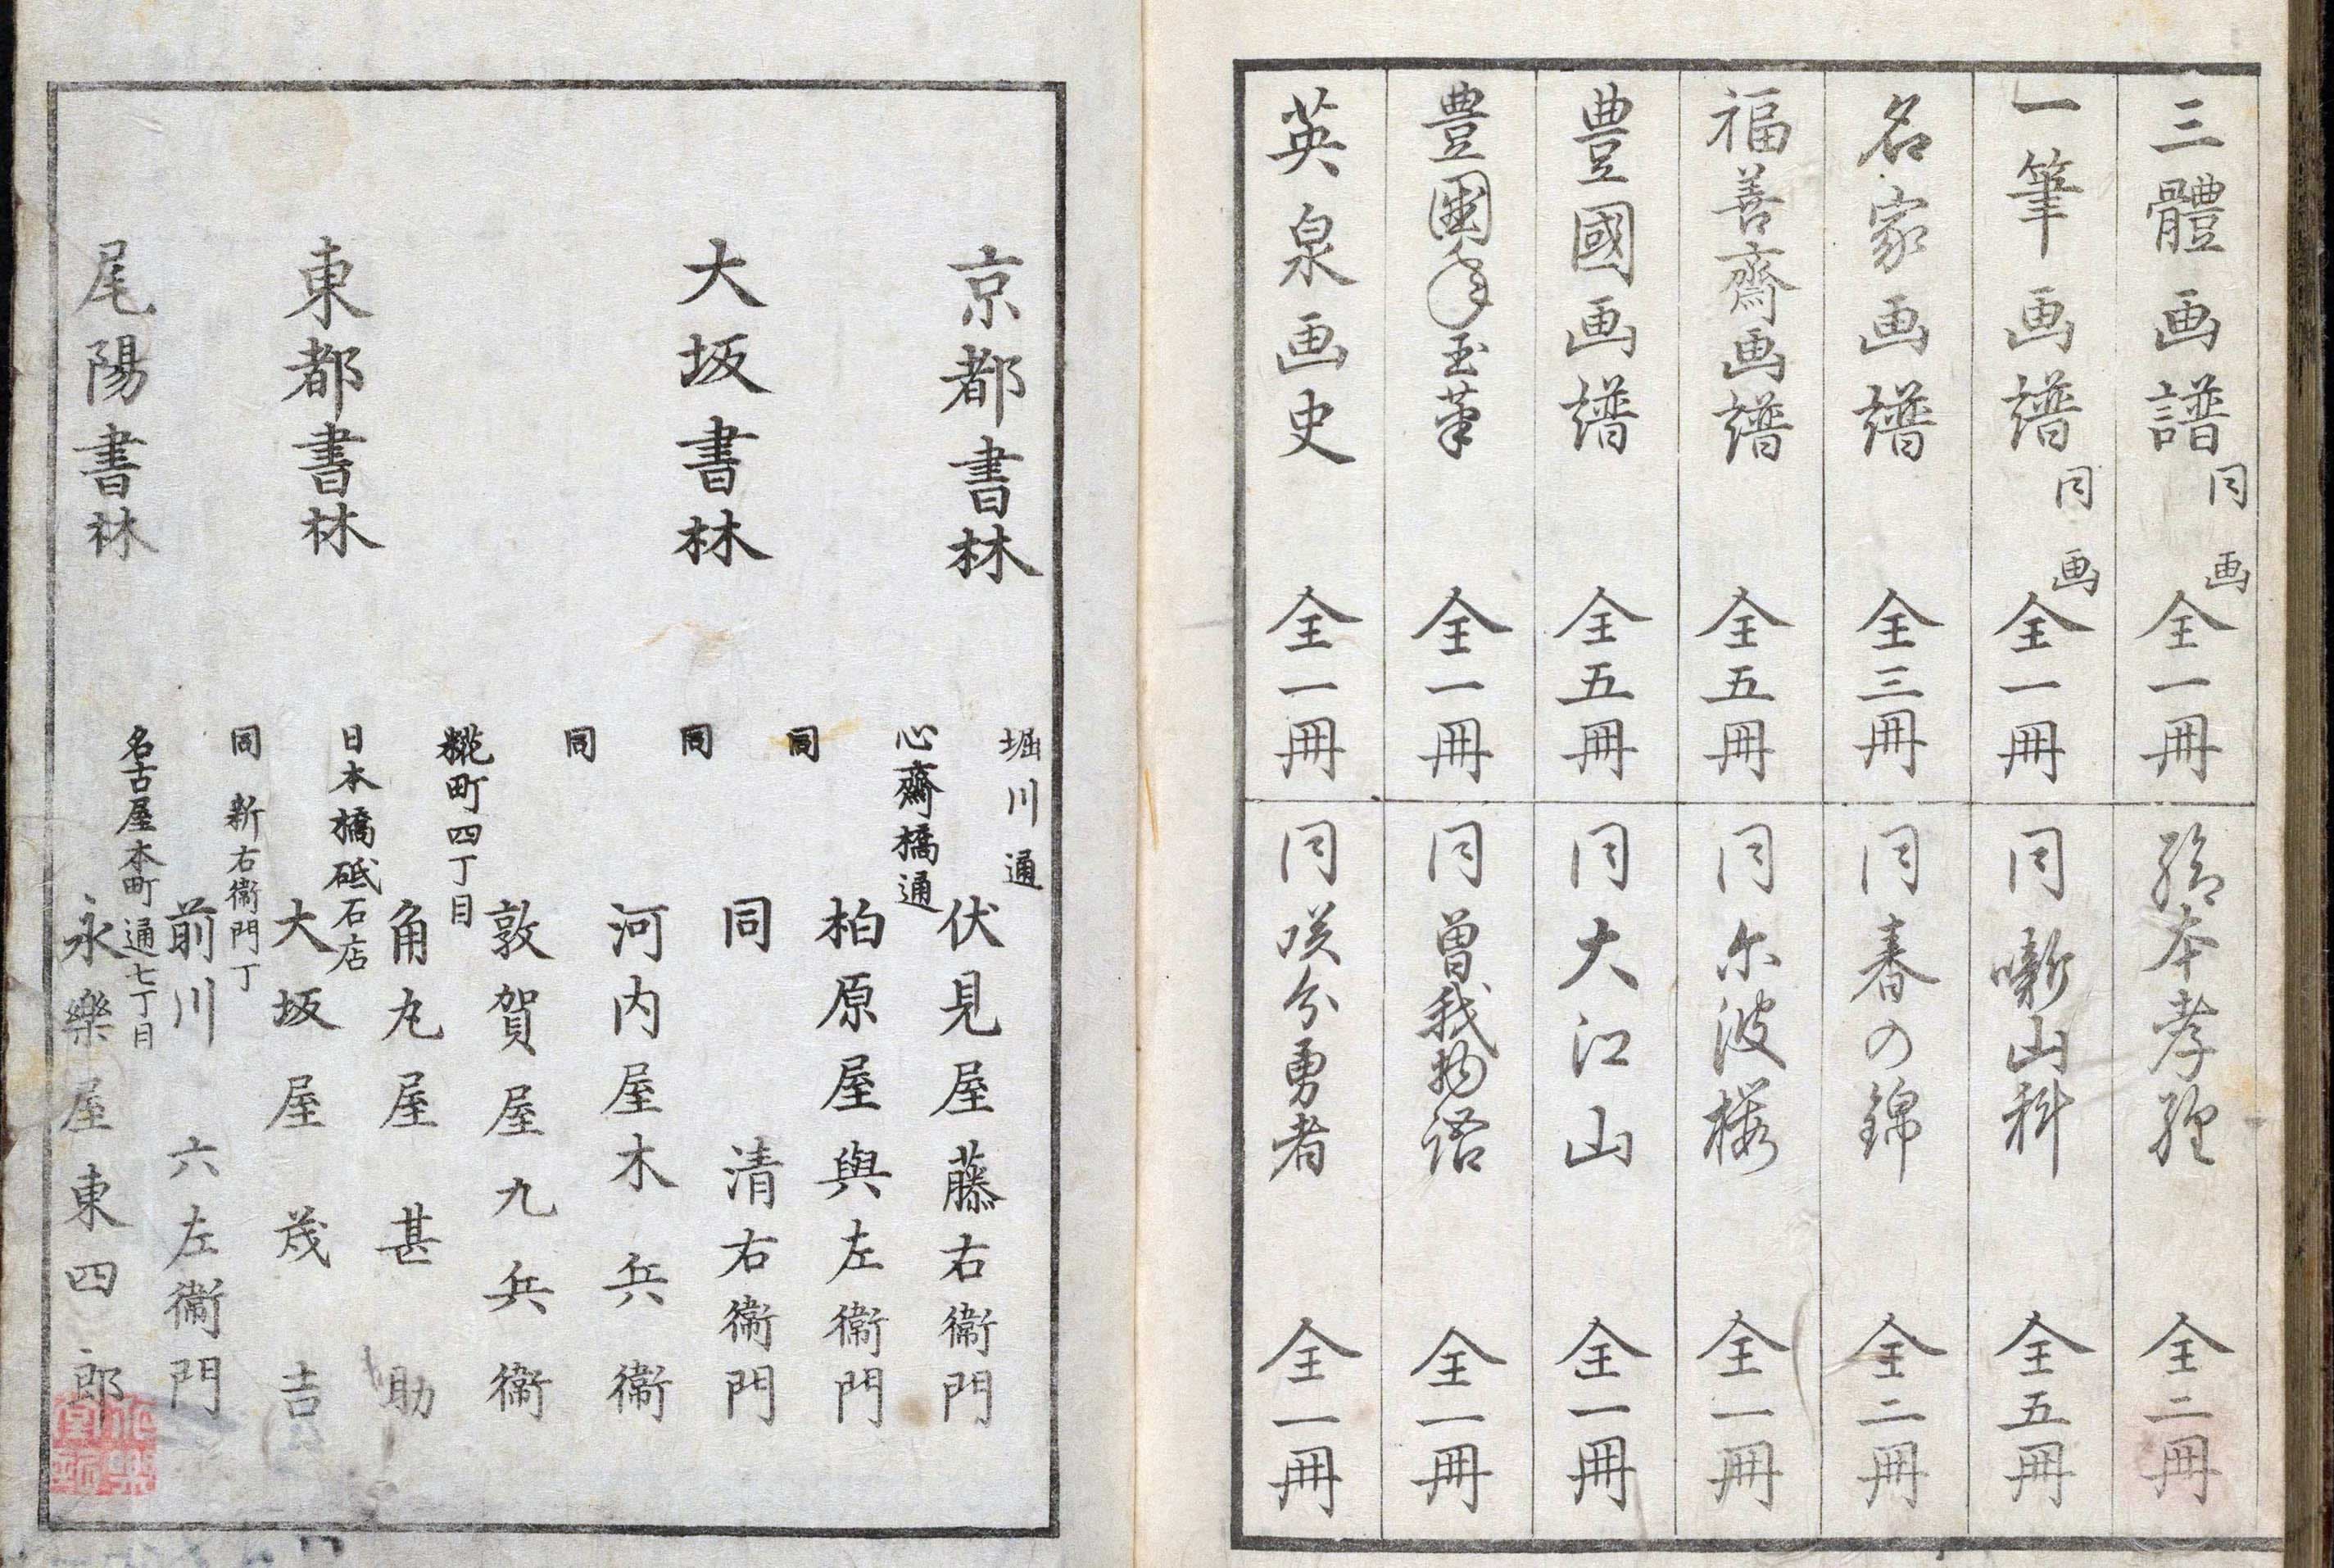 三體画譜 同画 全一冊
一筆画譜 同画 全一冊
名家画譜 全三冊
福善齋画譜 全五冊
豊國画譜 全五冊
豊國年玉筆 全一冊
英泉画史 全一冊
絵本孝經 全二冊
同 噺山科 全五冊
同 春の錦 全二冊
同 尓波桜 全一冊
同 大江山 全一冊
同 曽我物語 全一冊
同 咲分勇者 全一冊
京都書林 堀川通 伏見屋藤右衞門
大坂書林 心齋橋通 柏原屋與左衞門
同 同 清右衞門
同 河内屋木兵衞
同 敦賀屋九兵衞
東都書林 糀町四丁目 角丸屋甚助
日本橋砥石店 大坂屋茂吉
同 新右衞門丁 前川六左衞門
尾陽書林 名古屋本町通七丁目 永樂屋東四郎